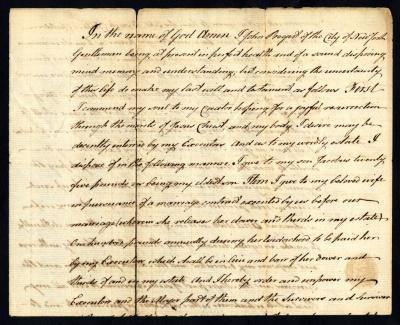 In the name of God Amen I John Bogart of the City of New York
Gentleman being at present in perfect health and of a sound disposing
mind memory and understanding, but considering the uncertainty
of this life do make my last will and testament as follow First
I commend my soul to my Creator hoping for a joyful resurrection
through the merits of Jesus Christ, and my body I desire may be
decently interred by my Executors And as to my wordly estate I
dispose of in the following manner I give to my son Jacobus twenty
five pounds as being my eldest son Item I give to my beloved wife
in pursuance of a marriage contract executed by us before our
marriage (wherein she release her dower and thirds in my estate)
One hundred pounds annually during her widowhood to be paid her
by my Executors, which shall be in lieu and barr of her dower and
thirds of and in my estate And I hereby order and empower my
Executors and the Major part of them and the Survivors and Survivor